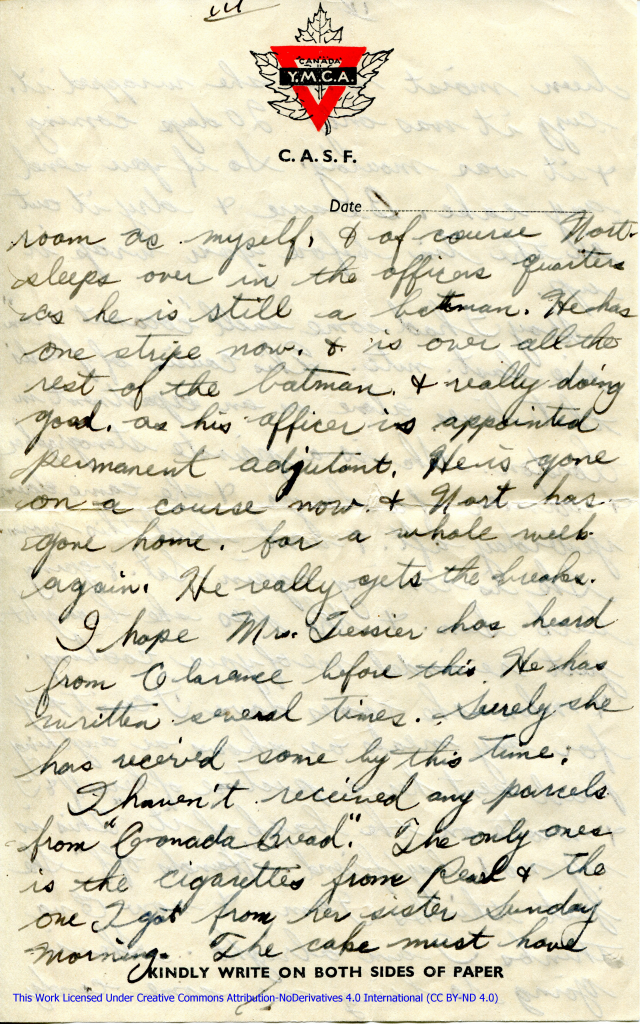 III
CANADA
Y.M.C.A.
C. A. S. F.
Date
room as myself, & of course Nort.
sleeps over in the officers quarters
as he is still a batman. He has
one stripe now. & is over all the
rest of the batman. & really doing
good. as his officer is appointed
permanent adjutant. He is gone
on a course now. & Nort has
gone home. for a whole week
again. He really gets the breaks.
I hope Mrs. Tessier has heard
from Clarence before this. He has
written several times. Surely she
has rec'e'vd some by this time.
I haven't received any parcels
from "Canada Bread". The only ones
is the cigarettes from Pearl & the
one I got from her sister Sunday
morning. The cake must have
KINDLY WRITE ON BOTH SIDES OF PAPER
This Work Licensed Under Creative Commons Attribution-NoDerivatives 4.0 International (CC BY-ND 4.0)